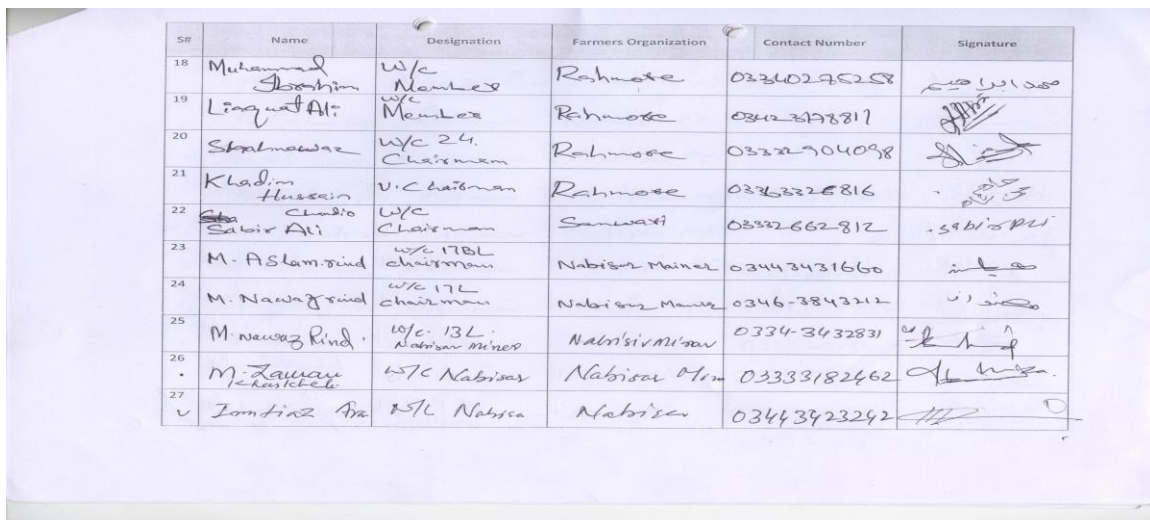 S# Name Designation Farmers Organization Contact Number Signature
18 Muhammad Ibrahim W/C Member Rahmore 03340275258 محمد ابراهيم
19 Liaquat Ali W/C Member Rahmore 03423178817
20 Shahnawaz W/C 24. Chairmam Rahmore 03332904098
21 Khadim Hussain V.Chairman Rahmore 03363326816
22 Chadio Sabir Ali W/C Chairman Sanwari 03332662812 .sabir Ali
23 M. ASlam.rind W/C 17BL chairman Nabisur Mainer 03443431660
24 M. Nawaz rind W/C 17L chairman Nabisur 0346-3843212
25 M. Nawaz Rind. W/C. 13L. Nabisar Miner 0334-3432831
26 M. Zaman Khaskheli W/C Nabisar Nabisar Min 03333182462
27 Imtiaz W/C Nabisa Nabisar 03443423242